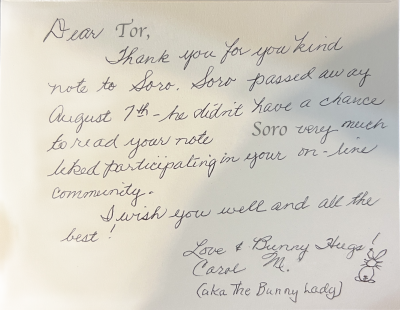 Dear Tor,
Thank you for you kind
note to Soro. Soro passed away
August 7th - he didn't have a chance
to read your note Soro very much
liked participating in your on-line
community.
I wish you well and all the
best!
Love & Bunny Hugs!
Carol M.
(aka The Bunny Lady)